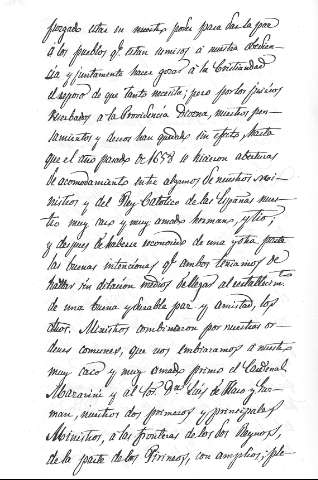 juzgado estar en nuestro poder para dar la paz
á los pueblos qe. estan sumisos á nuestra obedien-
cia y juntamente hacer gozar á la Christiandad
el reposo de que tanto necesita; pero por los juicios
reserbados a la Providencia Divina, nuestros pen-
samientos y deseos han quedado sin efecto, hasta
que el año pasado de 1658 se hicieron aberturas
de acomodamiento entre algunos de nuestros Mi-
nistros y del Rey Catolico de las Españas nues-
tro muy caro y muy amado hermano, y tio;
y despues de haberse reconocido de una y otra parte
las buenas intenciones qe. ambos teniamos de
hallar sin dilacion medios de llegar al establecim.to
de una buena y durable paz y amistad, los
dhos. Ministros combinaron por nuestras or-
denes comunes, que nos embiaramos a nuestro
muy caro y muy amado primo el Cardenal
Mazarini y al Sor. Dn. Luis de Haro y Guz-
man, nuestros dos primeros y principales
Ministros, a las fronteras de los dos Reynos,
de la parte de los Pirineos, con amplios, ple-